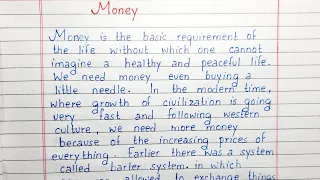 Money
Money is the basic requirement of
the life without which one cannot
imagine a healthy and peaceful life.
We need money even buying a
little needle. In the modern time,
where growth of civilization is going
very fast and following western
culture, we need more money
because of the increasing prices of
everything. Earlier there was a system
called barter system. in which
allowed to exchange things